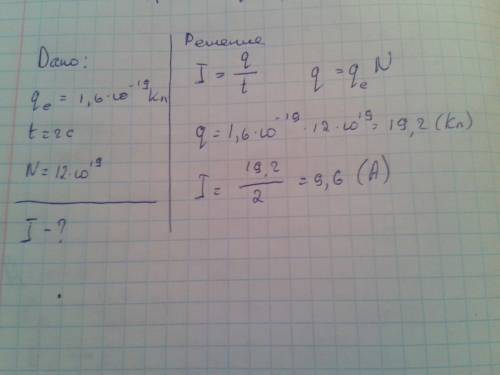 Дано:
qₑ = 1,6·10⁻¹⁹ Кл
t = 2с
N = 12·10¹⁹
I - ?
Решение
I = q/t   q = qₑ N
q = 1,6·10⁻¹⁹ · 12·10¹⁹ = 19,2 (Кл)
I = 19,2/2 = 9,6 (А)